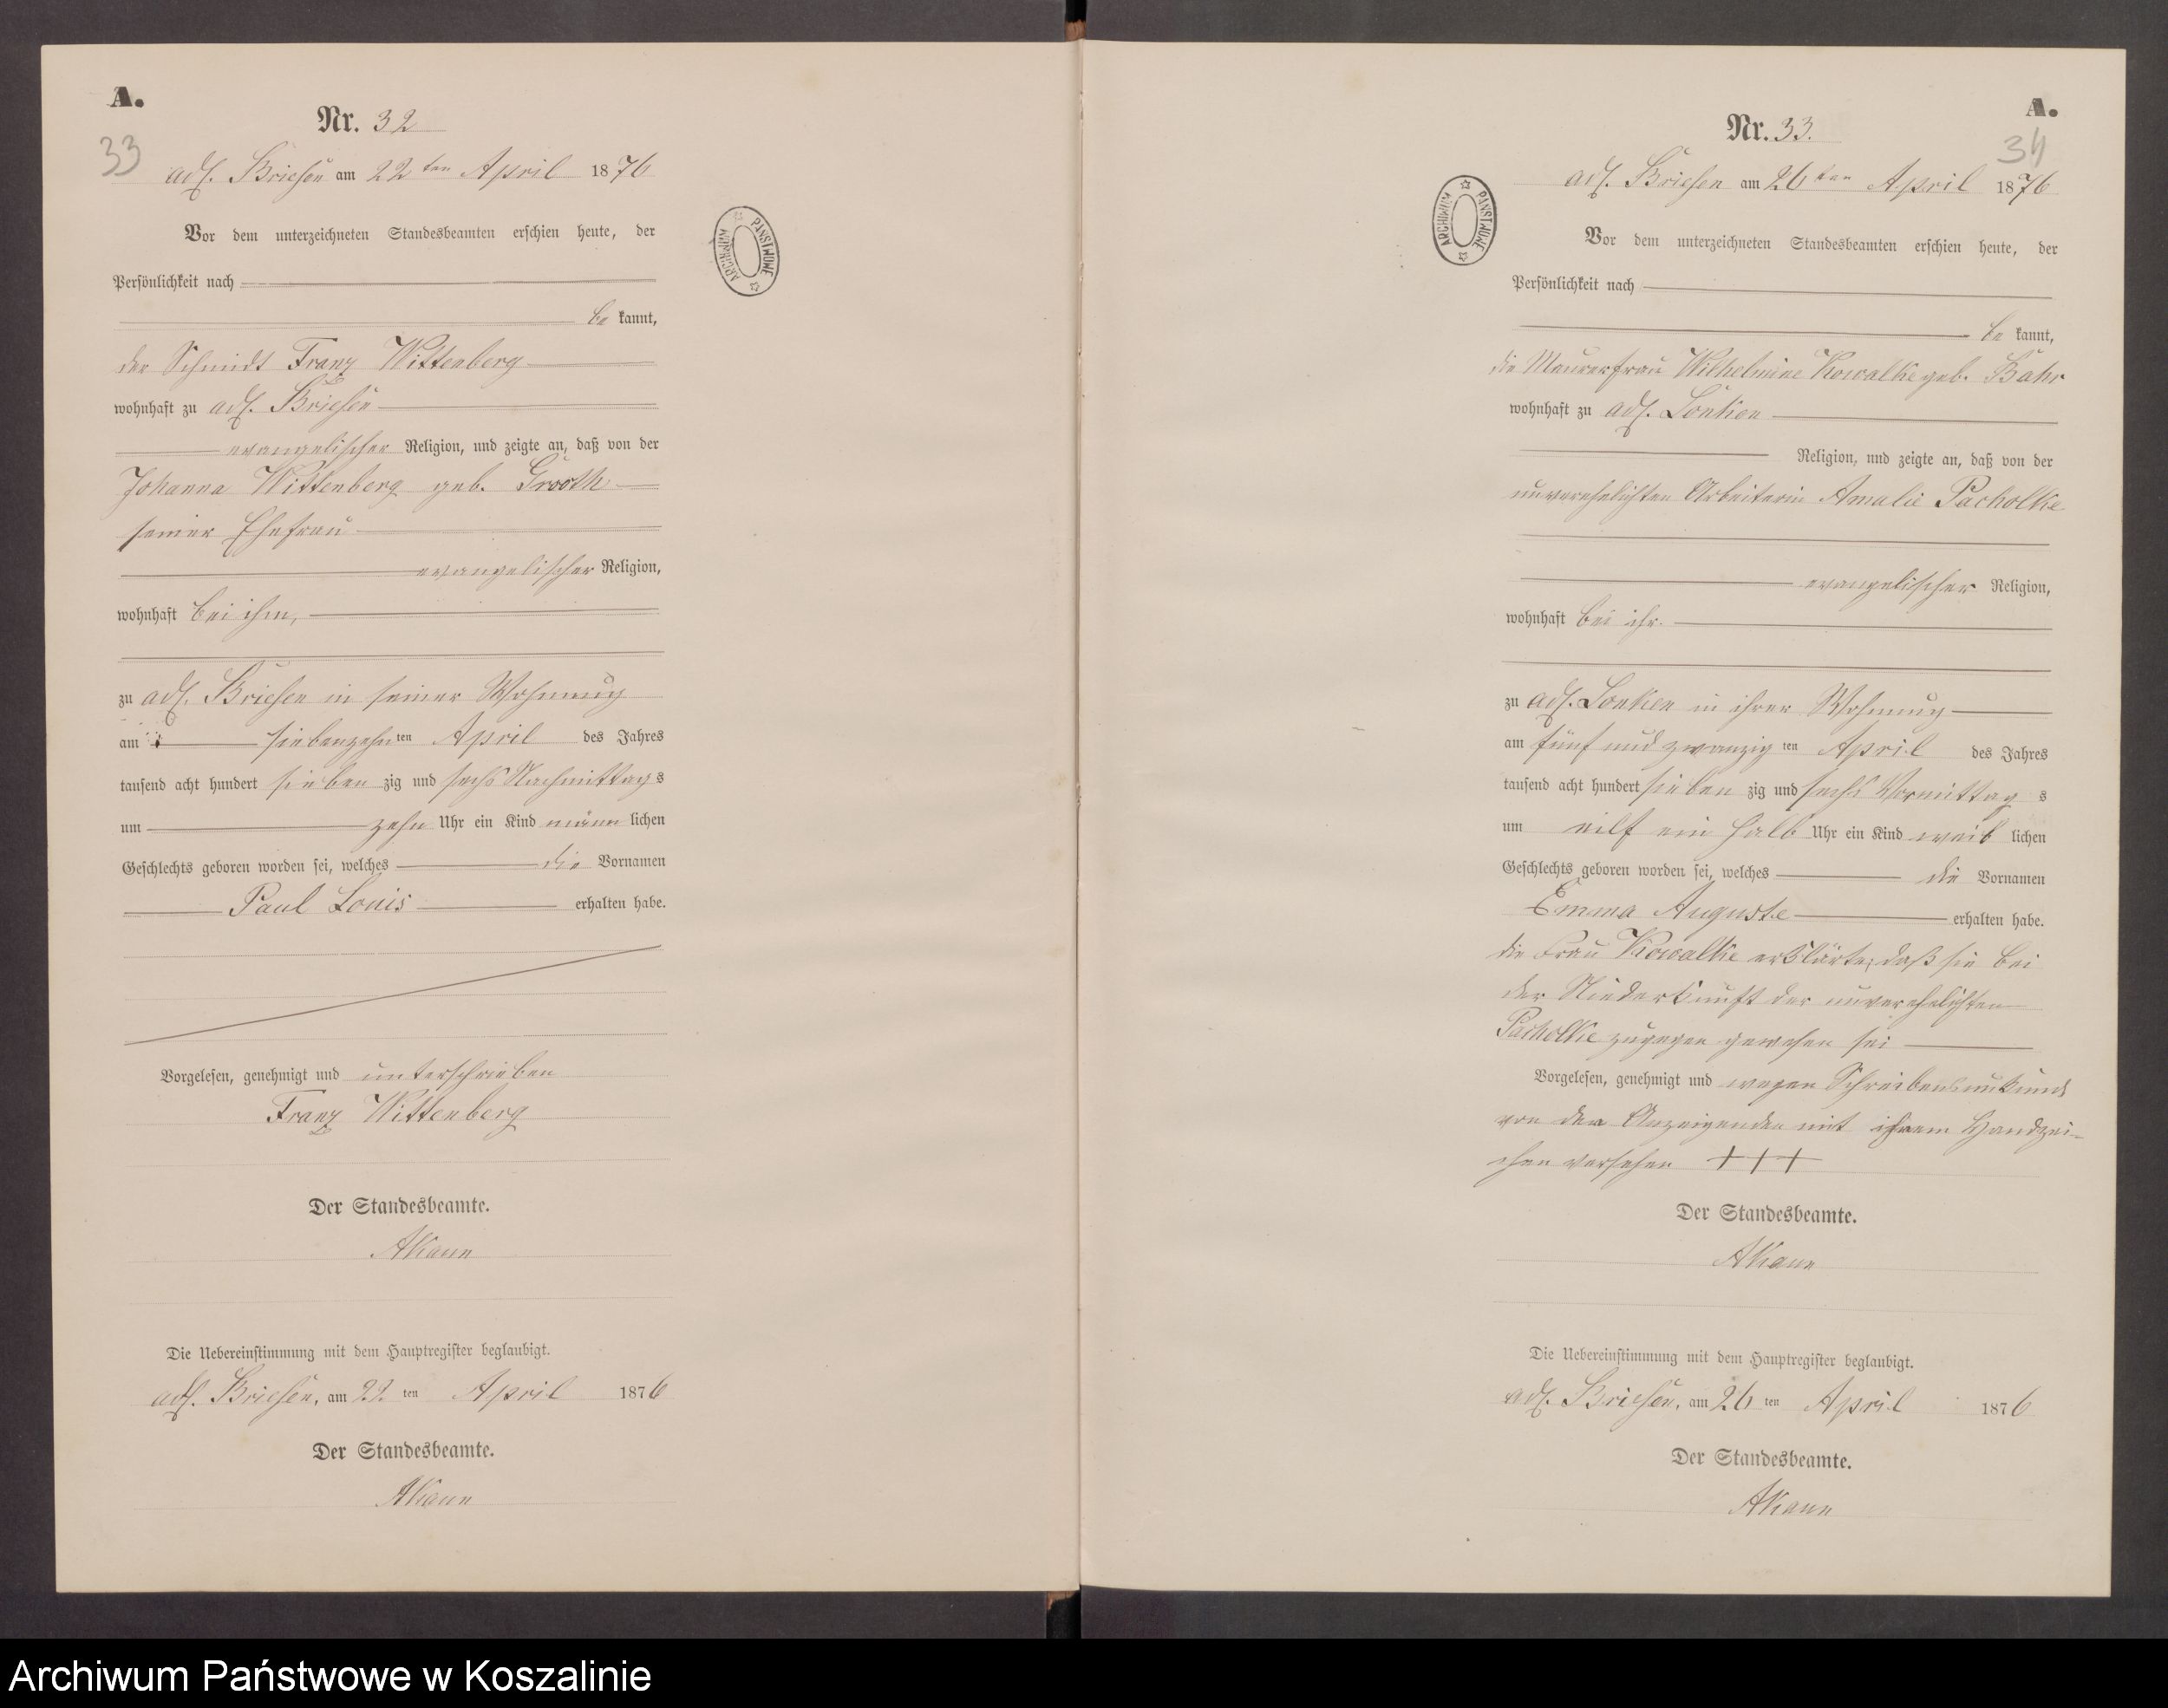 A.
Nr. 32
33
adl. Briesen am 22ten April 1876
Vor dem unterzeichneten Standesbeamten erschien heute, der
Persönlichkeit nach
be kannt,
der Schmidt Franz Wittenberg
wohnhaft zu adl. Briesen
evangelischer Religion, und zeigte an, daß von der
Johanna Wittenberg geb. Grooth
seiner Ehefrau
evangelischer Religion,
wohnhaft bei ihm,
zu adl. Briesen in seiner Wohnung
am siebenzehnten April des Jahres
tausend acht hundert sieben zig und sechs Nachmittags
um zehn Uhr ein Kind männ lichen
Geschlechts geboren worden sei, welches die Vornamen
Paul Louis erhalten habe.
Vorgelesen, genehmigt und unterschrieben
Franz Wittenberg
Der Standesbeamte.
AKann
Die Uebereinstimmung mit dem Hauptregister beglaubigt.
adl. Briesen, am 22. ten April 1876
Der Standesbeamte.
AKann
ARCHIWUM PAŃSTWOWE
A.
Nr. 33.
34
adl. Briesen am 26ten April 1876
Vor dem unterzeichneten Standesbeamten erschien heute, der
Persönlichkeit nach
be kannt,
die Maurerfrau Wilhelmine Kowalke geb. Bahr
wohnhaft zu adl. Lonken
Religion, und zeigte an, daß von der
unverehelichten Arbeiterin Amalie Pacholke
evangelischer Religion,
wohnhaft bei ihr.
zu adl. Lonken in ihrer Wohnung
am fünf und zwanzig ten April des Jahres
tausend acht hundert sieben zig und sechs Vormittag s
um eilf ein halb Uhr ein Kind weib lichen
Geschlechts geboren worden sei, welches die Vornamen
Emma Auguste erhalten habe.
die Frau Kowalke erklärte, daß sie bei
der Niederkunft der unverehelichten
Pacholke zugegen gewesen sei
Vorgelesen, genehmigt und wegen Schreibensunkunde
von der Anzeigenden mit ihrem Handzei-
chen versehen +++
Der Standesbeamte.
AKann
Die Uebereinstimmung mit dem Hauptregister beglaubigt.
adl. Briesen, am 26 ten April 1876
Der Standesbeamte.
AKann
ARCHIWUM PAŃSTWOWE
Archiwum Państwowe w Koszalinie